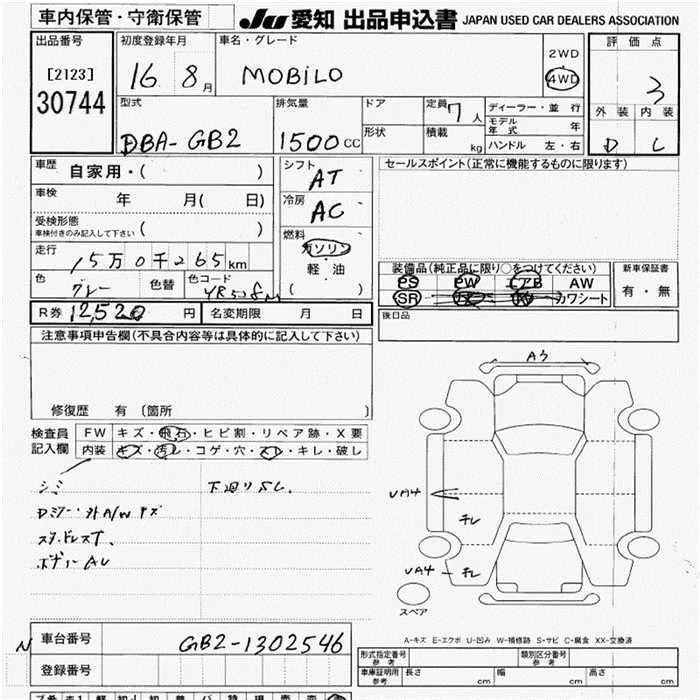 車内保管・守衛保管
JU 愛知 出品申込書 JAPAN USED CAR DEALERS ASSOCIATION
出品番号
[2123]
30744
初度登録年月
16 8月
車名・グレード
MOBILO
2WD
4WD
評価点
3
外装 内装
D C
型式
DBA-GB2
排気量
1500 CC
ドア
形状
定員 7人
積載 kg
ディーラー・並行
モデル年式 年
ハンドル 左・右
車歴 自家用・( )
車検 年 月( 日)
受検形態
車検付きのみ記入して下さい ( )
走行 15万0千265km
色 グレー 色替 色コード YR528M
シフト AT
冷房 AC
燃料
ガソリン
軽・油
( )
セールスポイント(正常に機能するものに限ります)
装備品(純正品に限り○をつけてください)
PS PW エアB AW
SR カワシート
新車保証書
有・無
後日品
R券 12,520 円 名変期限 月 日
注意事項申告欄(不具合内容等は具体的に記入して下さい)
修復歴 有 [箇所 ]
検査員記入欄
FW キズ・飛石・ヒビ割・リペア跡・X要
内装 キズ・汚レ・コゲ・穴・スレ・キレ・破レ
シミ 下廻りサビ
Dミラー・外A/Wキズ
スタッドレスT、
ボデーAU
Aう
UA4
UA4
スペア
A-キズ E-エクボ U-凹み W-補修跡 S-サビ C-腐食 XX-交換済
N 車台番号 GB2-1302546
登録番号
形式指定番号 参考 類別区分番号 参考
車庫証明用 参考 長さ cm 幅 cm 高さ cm